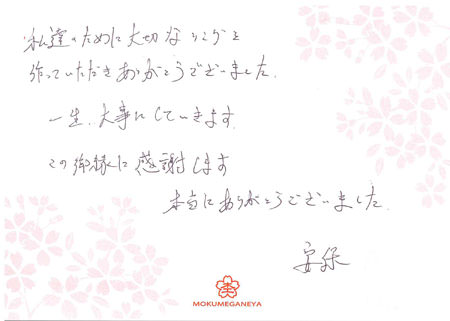 私達のために大切なリングを
作っていただきありがとうございました.
一生、大事にしていきます.
この御縁に感謝します
本当にありがとうございました.
安保
MOKUMEGANEYA